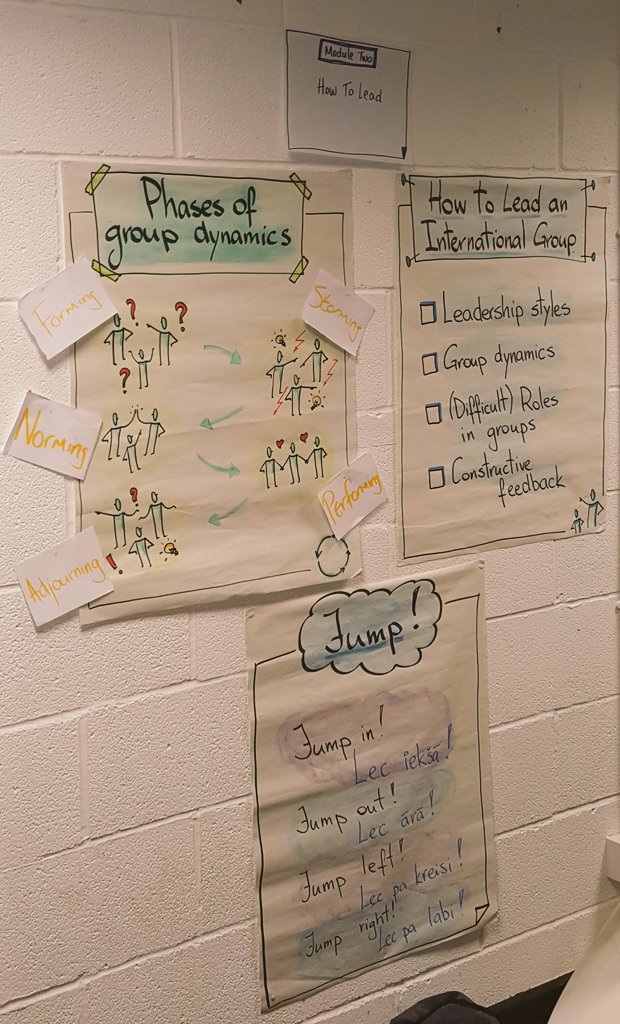 Module Two
How To Lead
Phases of
group dynamics
Forming
Storming
Norming
Performing
Adjourning
How To Lead an
International Group
Leadership styles
Group dynamics
(Difficult) Roles
in groups
Constructive
feedback
Jump!
Jump in!
Lec iekšā!
Jump out!
Lec ārā!
Jump left!
Lec pa kreisi!
Jump right!
Lec pa labi!